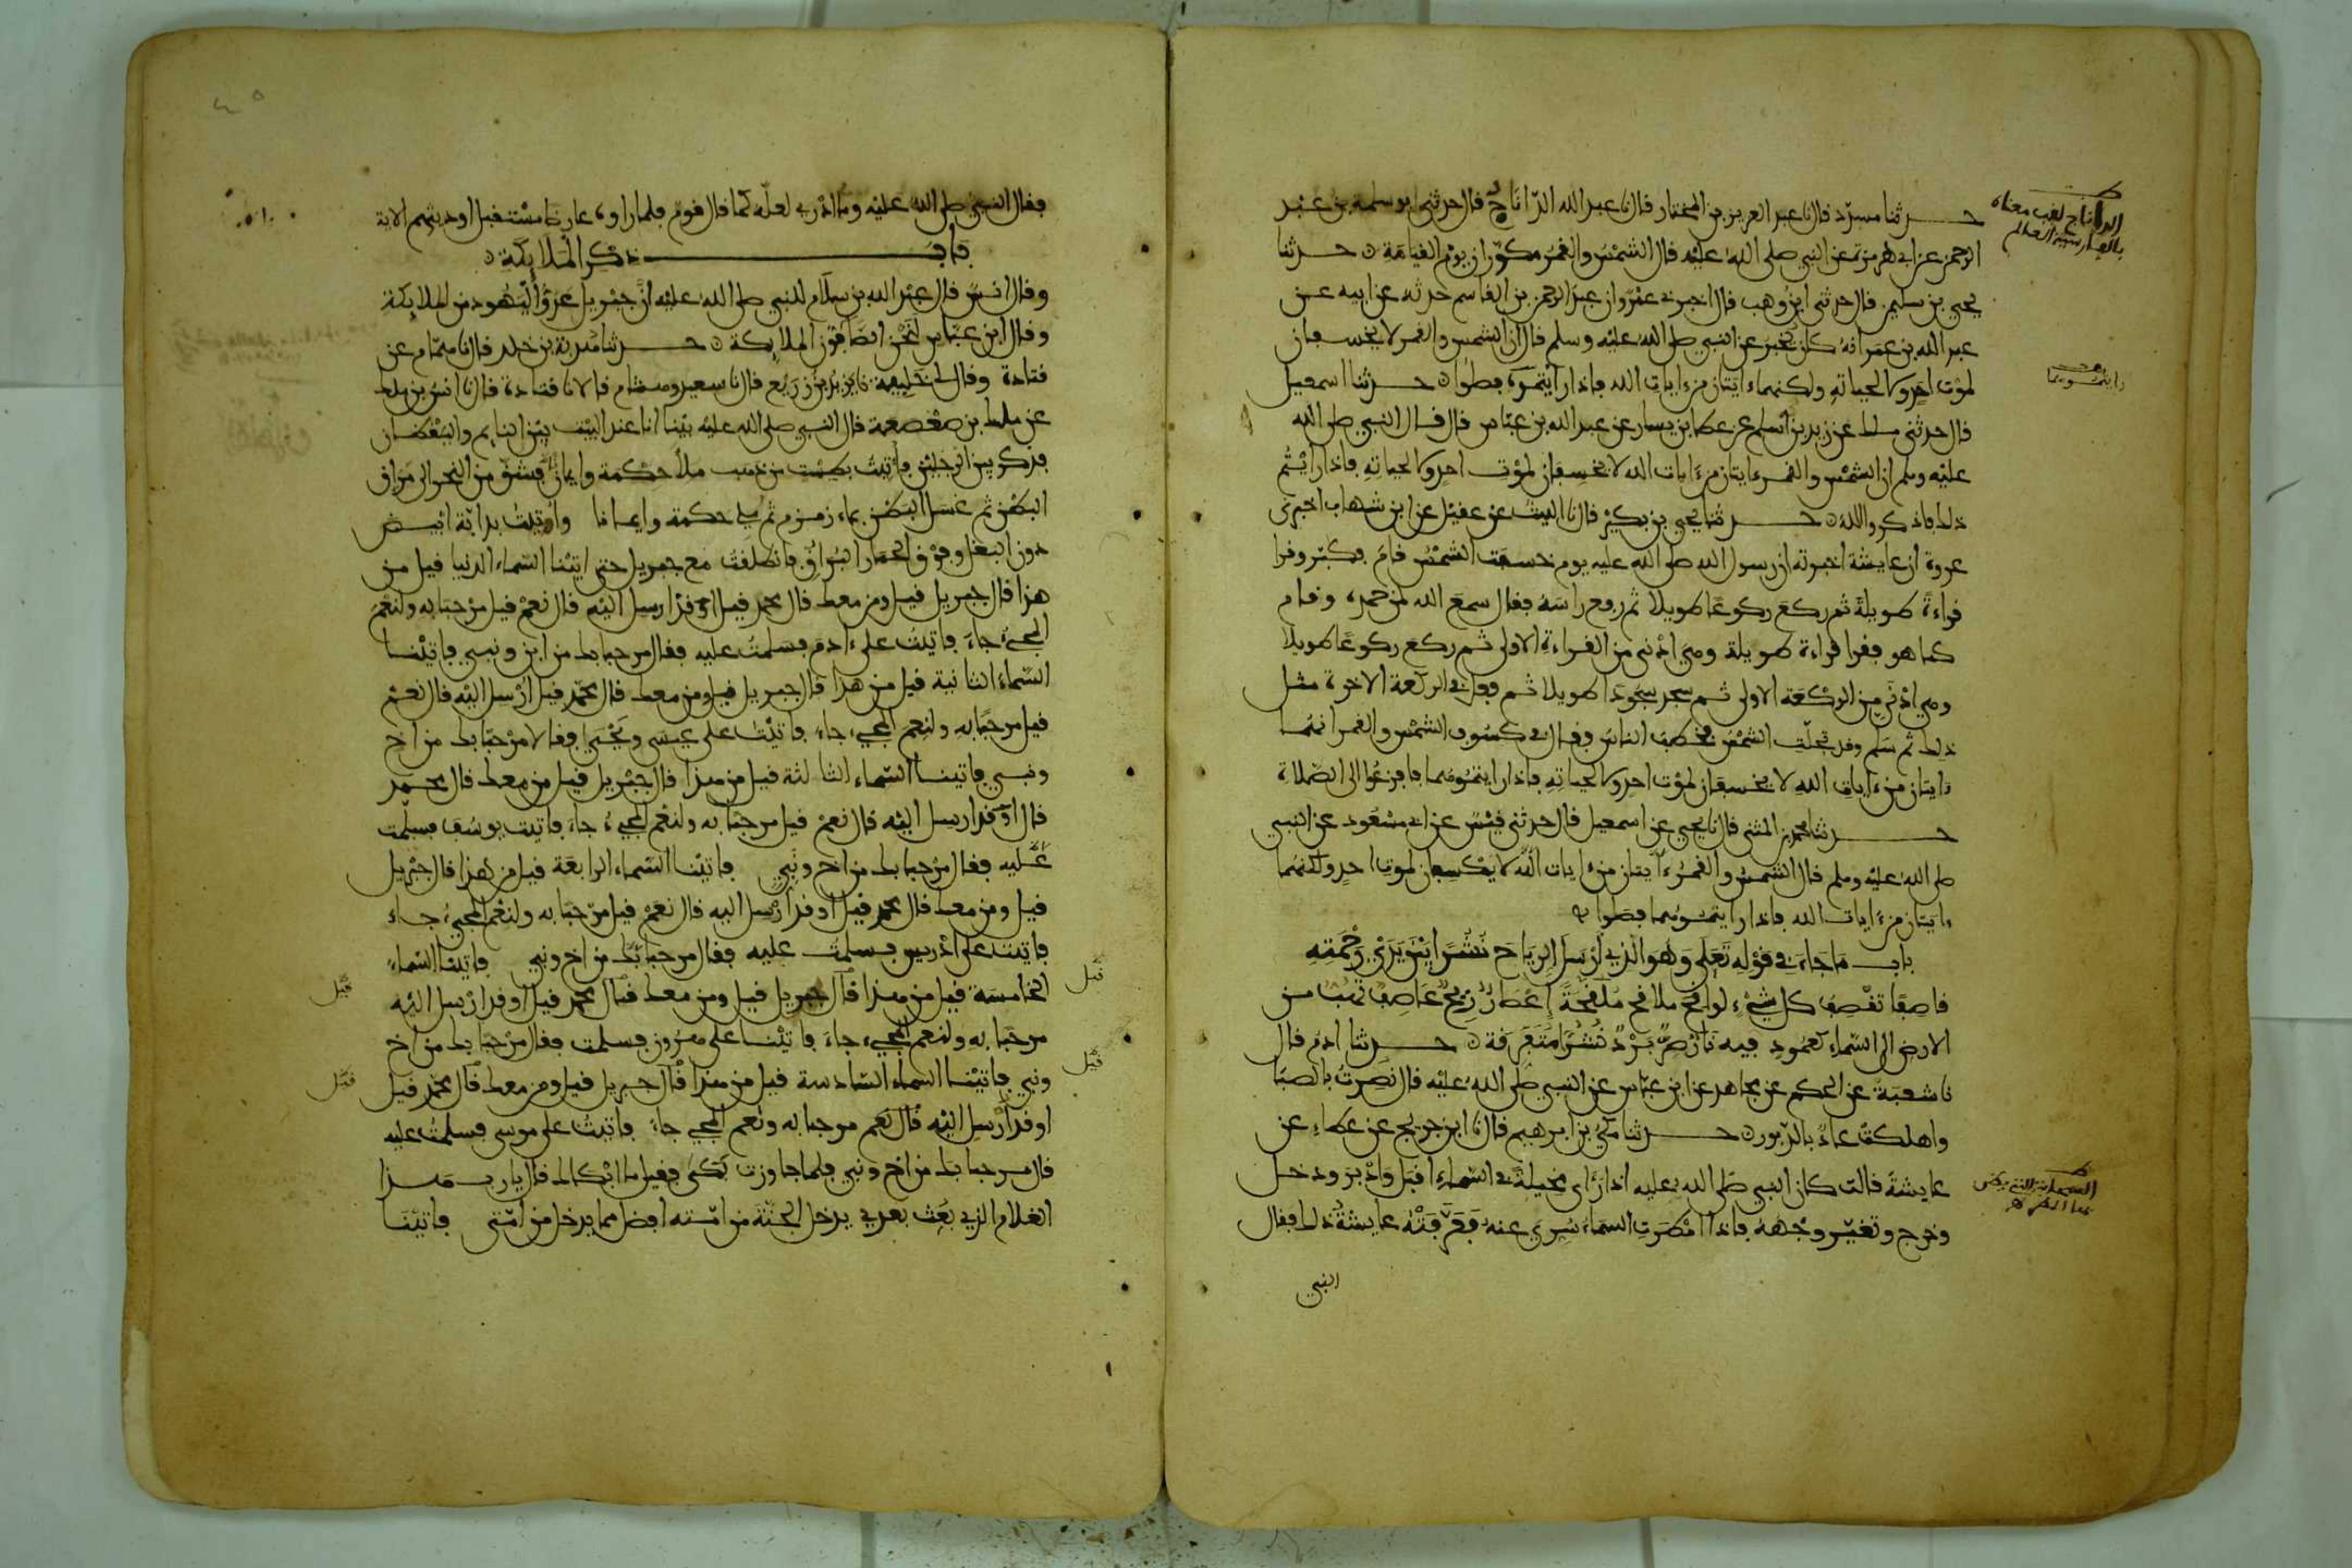 حدثنا مسدد قال نا عبد العزيز بن المختار قال نا عبد الله الدّاناج قال حدثني ابو سلمة بن عبد
الرحمن عن ابي هريرة عن النبي صلى الله عليه قال الشمس والقمر مكوّران يوم القيامة حدثنا
يحيى بن سليمن قال حدثني ابن وهب قال اخبرني عمرو ان عبد الرحمن بن القاسم حدثه عن ابيه عن
عبد الله بن عمر انه كان يخبر عن النبي صلى الله عليه وسلم قال ان الشمس والقمر لا يخسفان
لموت احد ولا لحياته ولكنهماء ايتان من ءايات الله فاذا رأيتموه فصلوا حدثنا اسمعيل
قال حدثني ملك عن زيد بن أسلم عن عطا بن يسار عن عبد الله بن عباس قال قال النبي صلى الله
عليه وسلم ان الشمس والقمر ءايتان من ءايات الله لا يخسفان لموت احد ولا لحياته فاذا رأيتم
ذلك فاذكروا الله حدثنا يحيى بن بكير قال نا الليث عن عقيل عن ابن شهاب اخبرني
عروة ان عايشة اخبرته ان رسول الله صلى الله عليه يوم خسفت الشمس قام فكبّر وقرا
قراءة طويلة ثم ركع ركوعا طويلا ثم رفع راسه فقال سمع الله لمن حمده وقام
كما هو فقرا قراءة طويلة وهي ادنى من القراءة الاولى ثم ركع ركوعا طويلا
وهي ادنى من الركعة الاولى ثم سجد سجودا طويلا ثم فعل في الركعة الاخرة مثل
ذلك ثم سلم وقد تجلّت الشمس فخطب الناس فقال في كسوف الشمس والقمر انهما
ءايتان من ءايات الله لا يخسفان لموت احد ولا لحياته فاذا رايتموهما فافزعوا الى الصّلاة
حدثنا محمد بن المثنى قال نا يحيى عن اسمعيل قال حدثني قيس عن ابي مسعود عن النبي
صلى الله عليه وسلم قال الشمس والقمر ءايتان من ءايات الله لا يكسفان لموت احد ولكنهما
ءايتان من ءايات الله فاذا رايتموهما فصلوا
باب ما جاء في قوله تعلى وهو الذي أرسل الرياح نشرا بين يدي رحمته
قاصفا تقصف كل شيء لواقح ملاقح ملقحة إعصار ريح عاصف تهب من
الارض الى السّماء كعمود فيه نار صر برد نشرا متفرقة حدثنا ادم قال
نا شعبة عن الحكم عن مجاهد عن ابن عباس عن النبي صلى الله عليه قال نصرت بالصبا
واهلكت عاد بالدّبور حدثنا مكي بن ابرهيم قال نا ابن جريج عن عطاء عن
عايشة قالت كان النبي صلى الله عليه اذا رأى مخيلة في السماء اقبل وادبر ودخل
وخرج وتغيّر وجهه فاذا امطرت السماء سري عنه فعرّفته عايشة ذلك فقال
النبي
الداناج لقب معناه
بالفارسية العالم
رايتموهما
فقال النبي صلى الله عليه وما ادري لعلّه كما قال قوم فلما راوه عارضا مستقبل اوديتهم الاية
باب ذكر الملايكة
وقال انس قال عبد الله بن سلام للنبي صلى الله عليه انّ جبريل عدوّ اليهود من الملايكة
وقال ابن عبّاس لنحن الصّافّون الملايكة حدثنا هدبة بن خلد قال نا همّام عن
قتادة وقال لي خليفة نا يزيد بن زريع قال نا سعيد وهشام قالا نا قتادة قال نا انس بن ملك
عن ملك بن صعصعة قال النبي صلى الله عليه بينا انا عند البيت بين النايم واليقظان
فذكر بين الرجلين فأتيت بطست من ذهب ملأ حكمة وايمانا فشق من النحر الى مراق
البطن ثم غسل البطن بماء زمزم ثم ملئ حكمة وايمانا وأوتيت بدابّة ابيض
دون البغل وفوق الحمار البراق فانطلقت مع جبريل حتى اتينا السّماء الدنيا قيل من
هذا قال جبريل قيل ومن معك قال محمد قيل اوقد ارسل اليه قال نعم قيل مرحبا به ولنعم
المجيء جاء فاتيت على ءادم فسلمت عليه فقال مرحبا بك من ابن ونبي فاتينا
السّماء الثانية قيل من هذا قال جبريل قيل ومن معك قال محمّد قيل ارسل اليه قال نعم
قيل مرحبا به ولنعم المجيء جاء فاتيت على عيسى ويحيى فقالا مرحبا بك من اخ
ونبي فاتينا السّماء الثالثة قيل من هذا قال جبريل قيل من معك قال محمد
قال اوقد ارسل اليه قال نعم قيل مرحبا به ولنعم المجيء جاء فاتيت يوسف فسلّمت
عليه فقال مرحبا بك من اخ ونبي فاتينا السّماء الرابعة قيل من هذا قال جبريل
قيل ومن معك قال محمد قيل اوقد ارسل اليه قال نعم قيل مرحبا به ولنعم المجيء جاء
فاتيت على ادريس فسلمت عليه فقال مرحبا بك من اخ ونبي فاتينا السّماء
الخامسة قيل من هذا قال جبريل قيل ومن معك قال محمد قيل اوقد ارسل اليه
مرحبا به ولنعم المجيء جاء فاتينا على هرون فسلمت فقال مرحبا بك من اخ
ونبي فاتينا السماء السّادسة قيل من هذا قال جبريل قيل ومن معك قال محمد قيل
اوقد أرسل اليه قال نعم مرحبا به ونعم المجيء جاء فاتيت على موسى فسلمت عليه
قال مرحبا بك من اخ ونبي فلما جاوزت بكى فقيل ما ابكاك قال يا رب هذا
الغلام الذي بعث بعدي يدخل الجنّة من امّته افضل مما يدخل من امّتي فاتينا
قيل
قيل
قيل
قيل